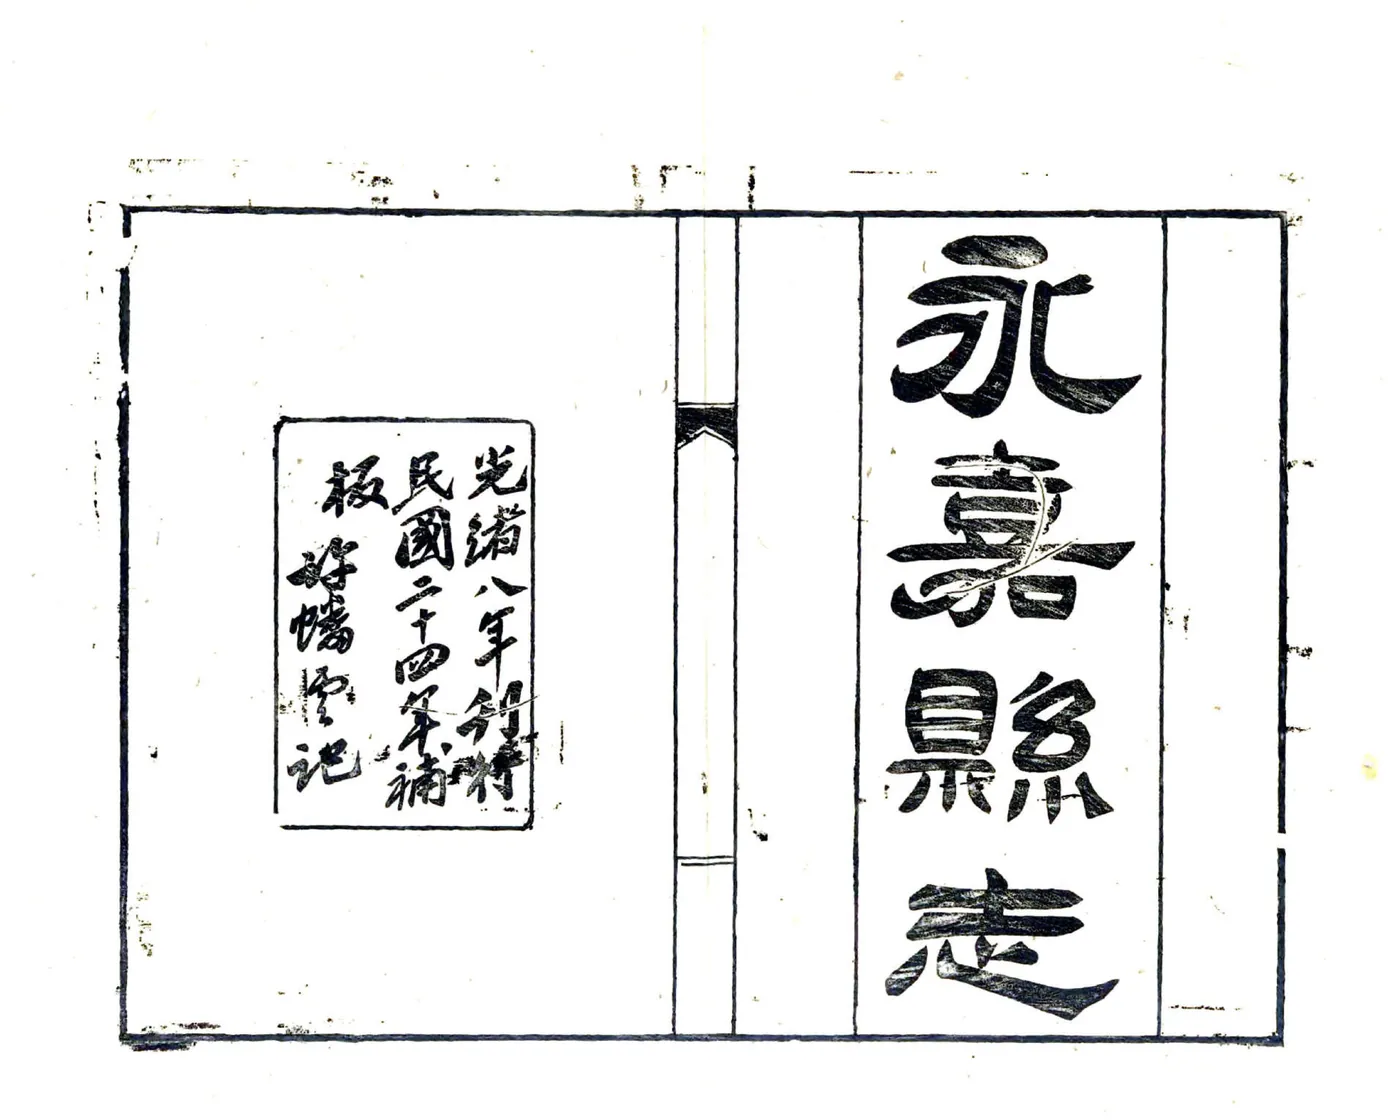 永嘉縣志
光緒八年刊行
民國二十四年補
板 許蟠雲記